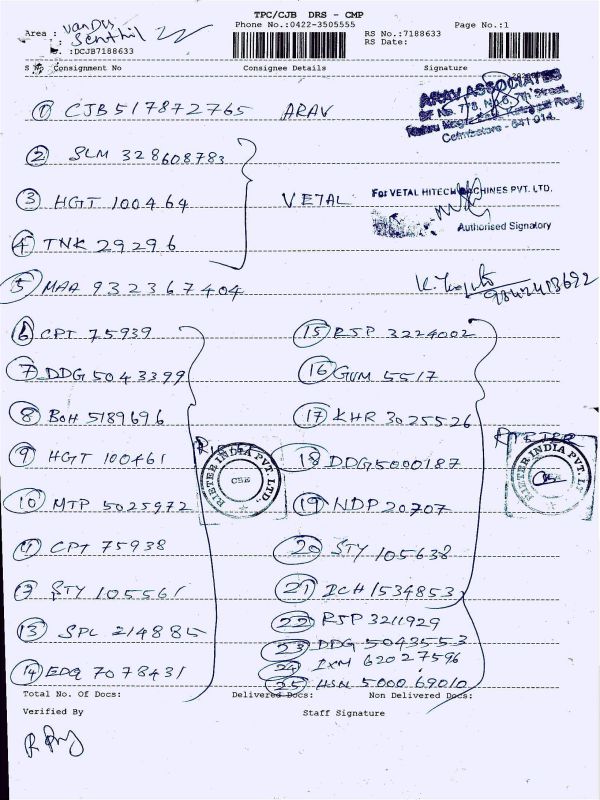 TPC/CJB DRS - CMP
Phone No.:0422-3505555
Page No.:1
Area :
Senthil
RS No.:7188633
RS Date:
.:DCJB7188633
Consignment No
Consignee Details
Signature
① CJB 517872765 ARAV
ARAV ASSOCIATES
7th Street
Coimbatore - 641 014.
② SLM 328608783
③ HGT 100464 VETAL
For VETAL HITECH MACHINES PVT. LTD.
Authorised Signatory
④ TNK 29296
⑤ MAA 932367404
⑥ CPT 75939 ⑮ RSP 3224002
⑦ DDG 5043399 ⑯ GUM 5517
⑧ BOH 5189696 ⑰ KHR 3025526
⑨ HGT 100461 ⑱ DDG5000187
RIETER INDIA PVT. LTD.
CBE
RIETER
RIETER INDIA PVT. LT
⑩ MTP 5025972 ⑲ NDP 20707
CPT 75938 ⑳ STY 105638
STY 105561 ㉑ ICH 1534853
㉒ RSP 3211929
⑬ SPL 214885 ㉓ DDG 5043553
㉔ IXM 62027596
⑭ EDQ 7078431 ㉕ HSN 5000 69010
Total No. Of Docs:
Delivered Docs:
Non Delivered Docs:
Verified By
Staff Signature